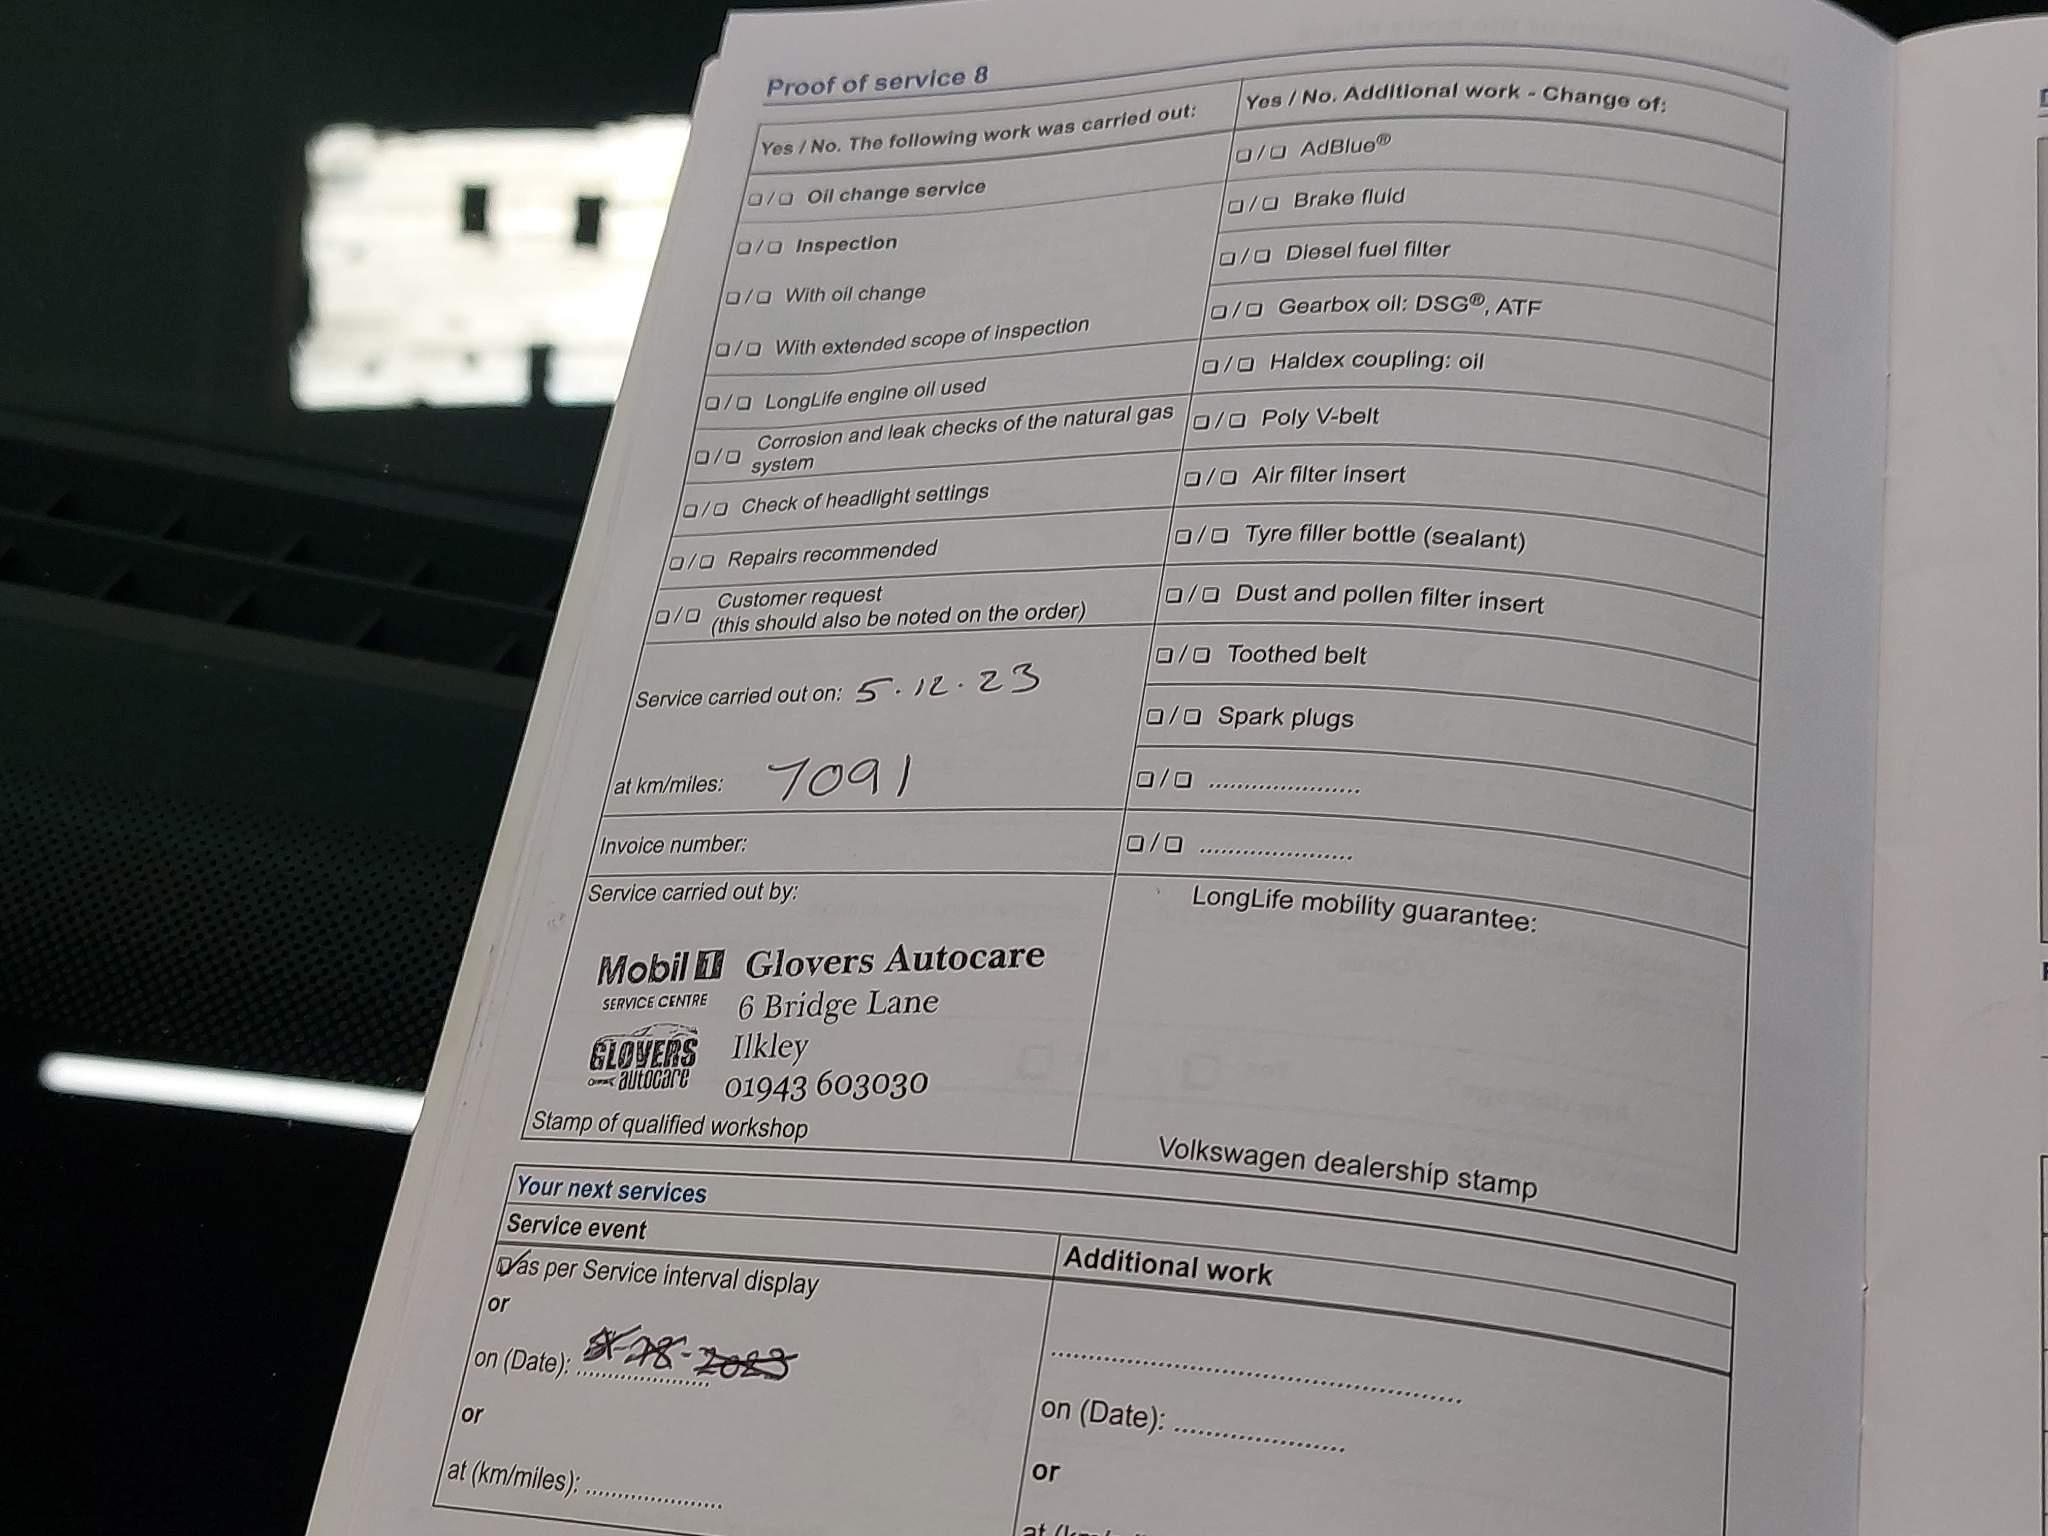 Proof of service 8
Yes / No. The following work was carried out:
❑ / ❑ Oil change service
❑ / ❑ Inspection
❑ / ❑ With oil change
❑ / ❑ With extended scope of inspection
❑ / ❑ LongLife engine oil used
❑ / ❑ Corrosion and leak checks of the natural gas
system
❑ / ❑ Check of headlight settings
❑ / ❑ Repairs recommended
❑ / ❑ Customer request
(this should also be noted on the order)
Service carried out on: 5.12.23
at km/miles: 7091
Invoice number:
Service carried out by:
Mobil 1 Glovers Autocare
SERVICE CENTRE 6 Bridge Lane
GLOVERS Ilkley
autocare 01943 603030
Stamp of qualified workshop
Yes / No. Additional work - Change of:
❑ / ❑ AdBlue®
❑ / ❑ Brake fluid
❑ / ❑ Diesel fuel filter
❑ / ❑ Gearbox oil: DSG®, ATF
❑ / ❑ Haldex coupling: oil
❑ / ❑ Poly V-belt
❑ / ❑ Air filter insert
❑ / ❑ Tyre filler bottle (sealant)
❑ / ❑ Dust and pollen filter insert
❑ / ❑ Toothed belt
❑ / ❑ Spark plugs
❑ / ❑ ......................
❑ / ❑ ......................
LongLife mobility guarantee:
Volkswagen dealership stamp
Your next services
Service event
☑ as per Service interval display
or
on (Date): ....................
or
at (km/miles): ....................
Additional work
............................................................
on (Date): .........................
or